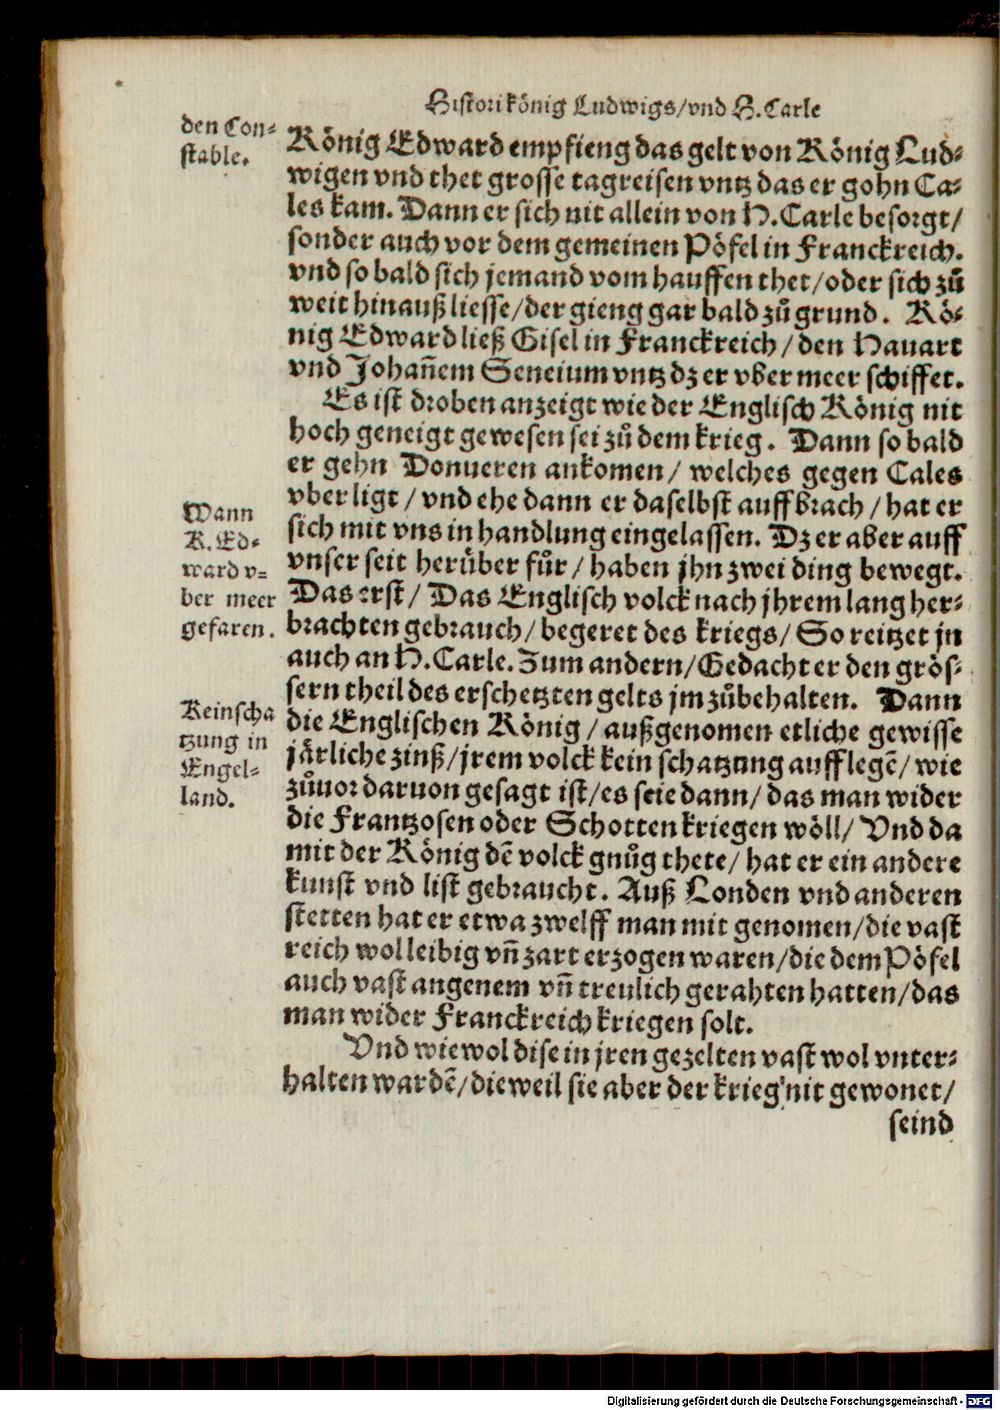 Histori König Ludwigs/vnd H. Carle
den Con-
stable.
König Edward empfieng das gelt von König Lud-
wigen vnd thet grosse tagreisen vntz das er gohn Ca-
les kam. Dann er sich nit allein von H. Carle besorgt/
sonder auch vor dem gemeinen Pöfel in Franckreich.
vnd so bald sich jemand vom hauffen thet/oder sich zů
weit hinauß liesse/der gieng gar bald zů grund. Kö-
nig Edward ließ Gisel in Franckreich/den Hauart
vnd Johañem Seneium vntz dz er vber meer schiffet.
Es ist droben anzeigt wie der Englisch König nit
hoch geneigt gewesen sei zů dem krieg. Dann so bald
er gehn Donueren ankomen/ welches gegen Cales
vber ligt/vnd ehe dann er daselbst auffbrach/hat er
sich mit vns in handlung eingelassen. Dz er aber auff
vnser seit herüber fůr/haben jhn zwei ding bewegt.
Das erst/ Das Englisch volck nach jhrem lang her-
brachten gebrauch/begeret des kriegs/ So reitzet jn
auch an H. Carle. Zum andern/Gedacht er den grös-
sern theil des erschetzten gelts jm zůbehalten. Dann
die Englischen König/außgenomen etliche gewisse
järliche zinß/jrem volck kein schatzung aufflegē/wie
zůuor daruon gesagt ist/es seie dann/das man wider
die Frantzosen oder Schotten kriegen wöll/ Vnd da
mit der König dē volck gnůg thete/hat er ein andere
kunst vnd list gebraucht. Auß Londen vnd anderen
stetten hat er etwa zwelff man mit genomen/die vast
reich wolleibig vñ zart erzogen waren/die dem Pöfel
auch vast angenem vñ treulich gerahten hatten/das
man wider Franckreich kriegen solt.
Vnd wiewol dise in jren gezelten vast wol vnter-
halten wardē/dieweil sie aber der krieg nit gewonet/
seind
Wann
K. Ed-
ward v-
ber meer
gefaren.
Keinscha
tzung in
Engel-
land.
Digitalisierung gefördert durch die Deutsche Forschungsgemeinschaft - DFG